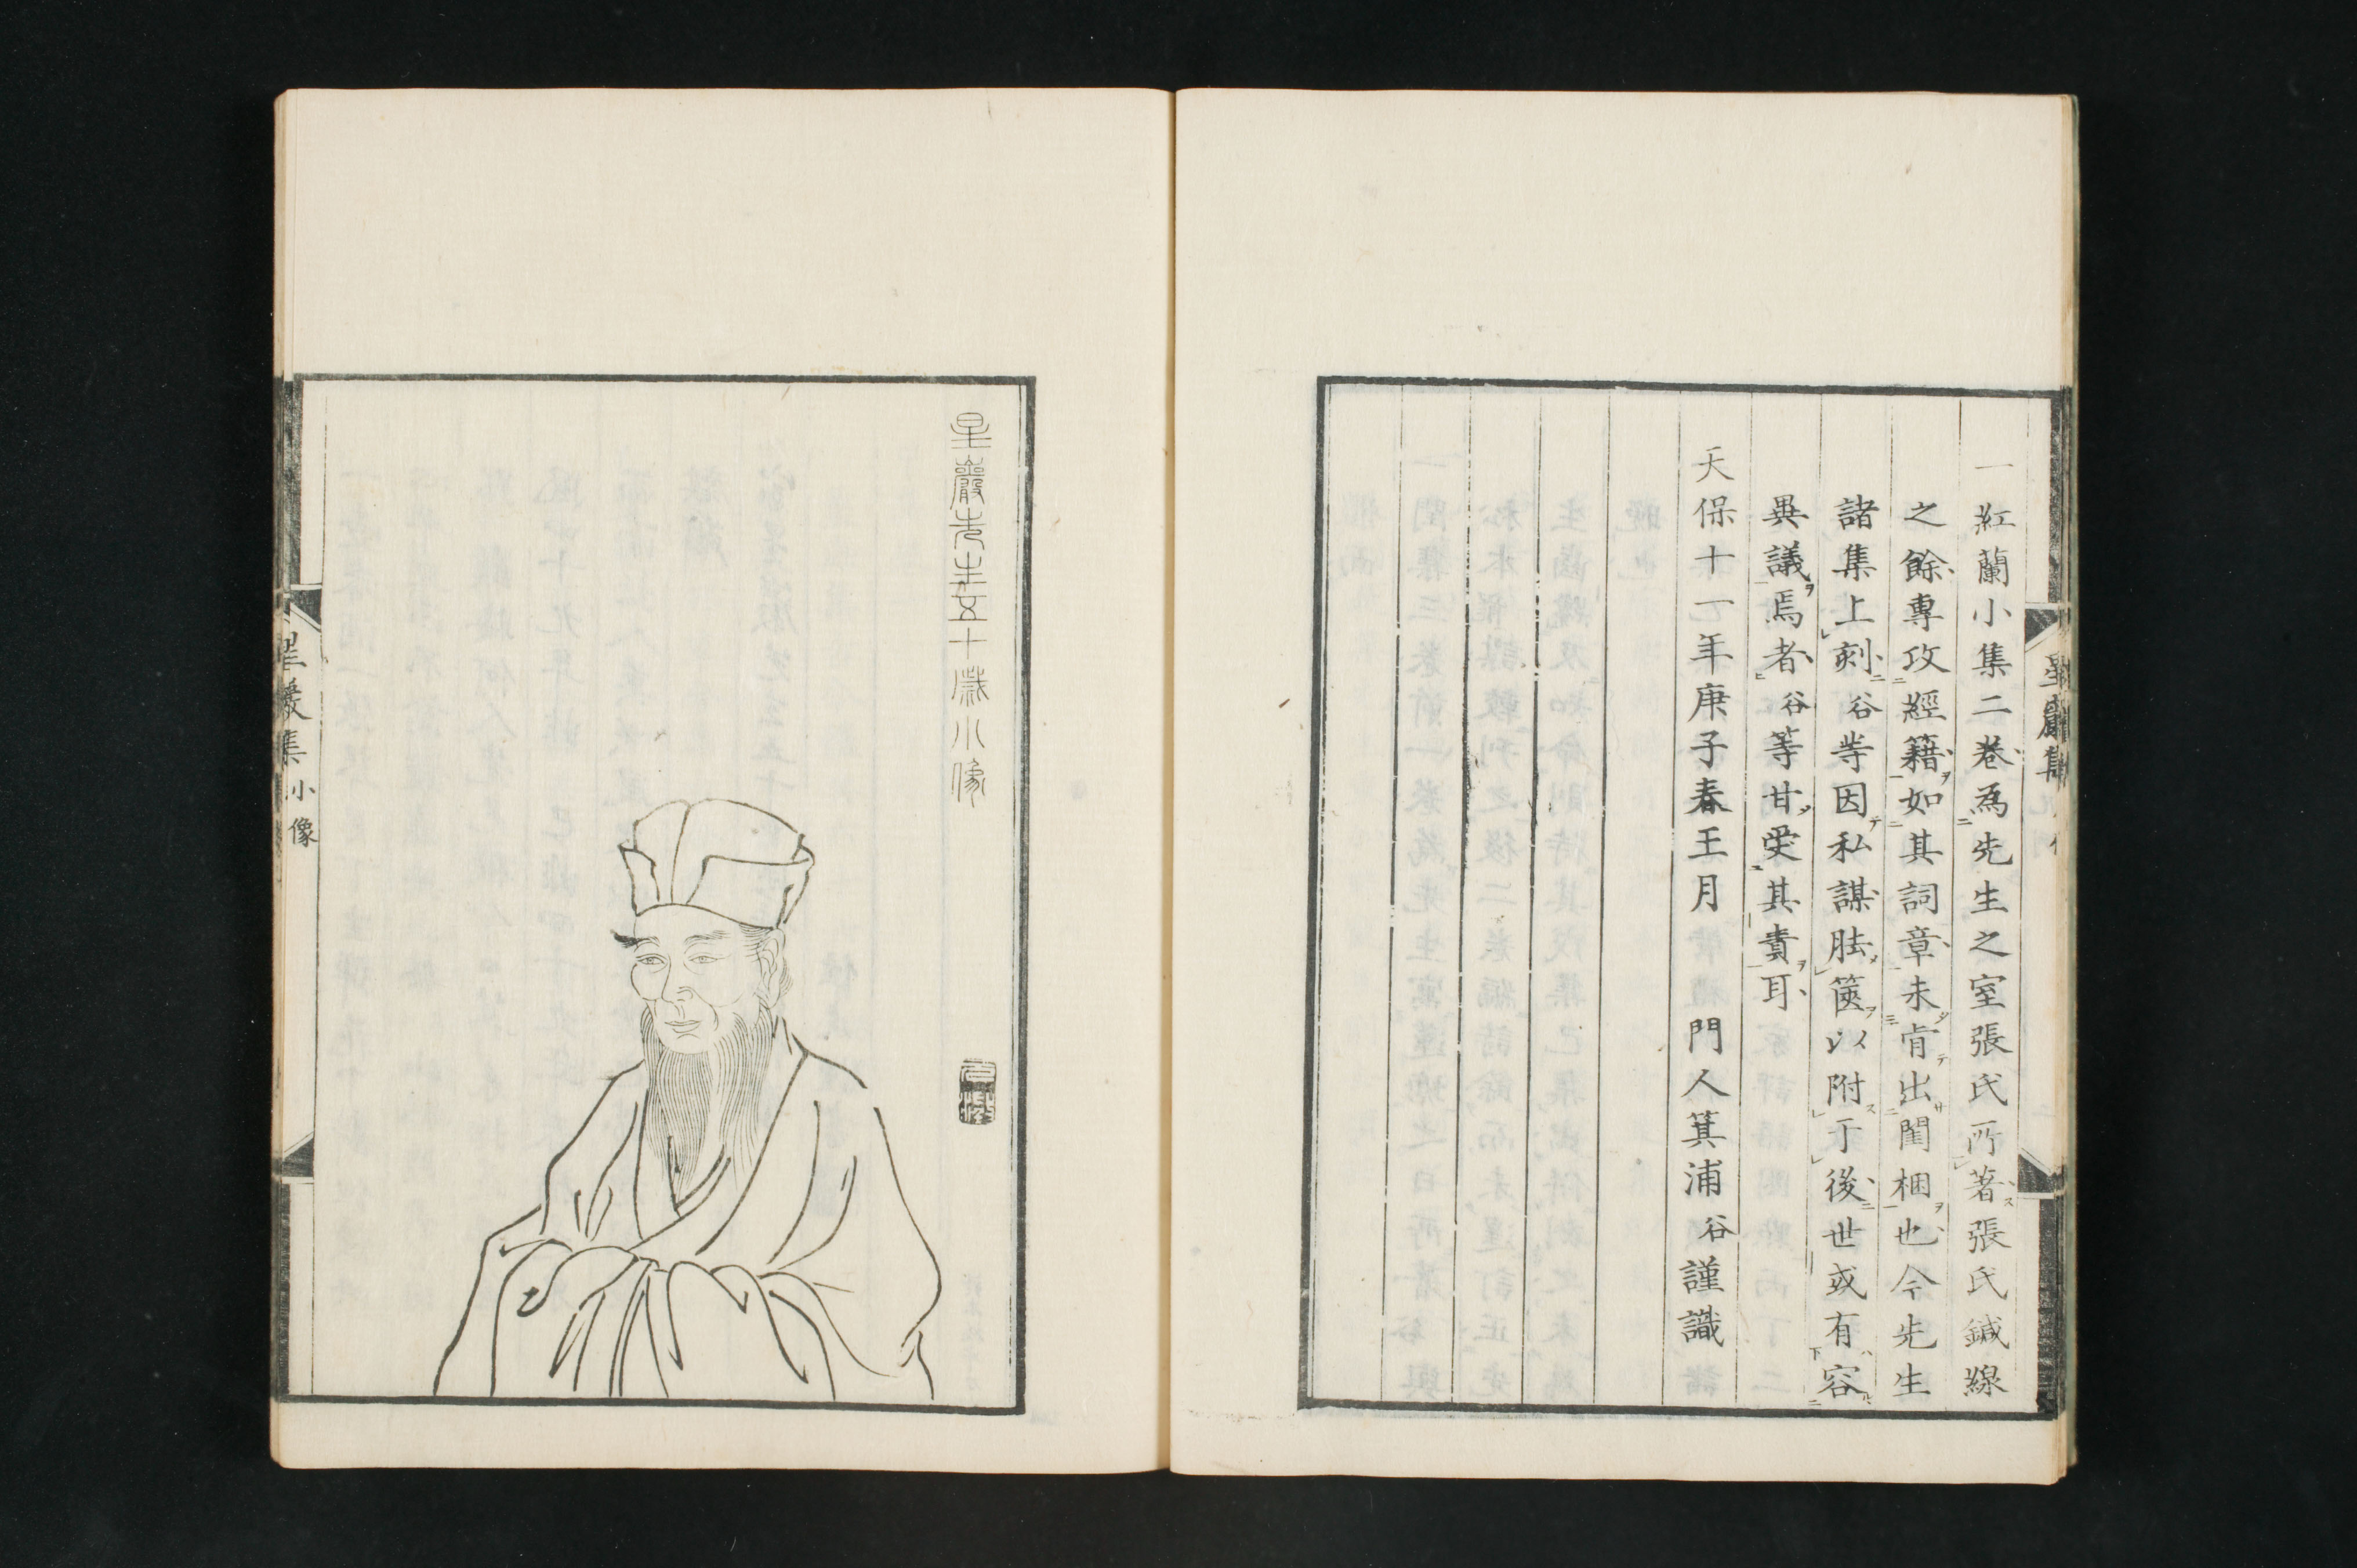 一紅蘭小集二卷爲先生之室張氏所著張氏鍼線
之餘專攻經籍如其詞章未肯出閨梱也今先生
諸集上刻谷等因私謀胠篋以附于後世或有容
異議焉者谷等甘受其責耳
天保十一年庚子春王月 門人箕浦谷謹識
星巖集
星巖先生五十歲小像
星巖集 小像